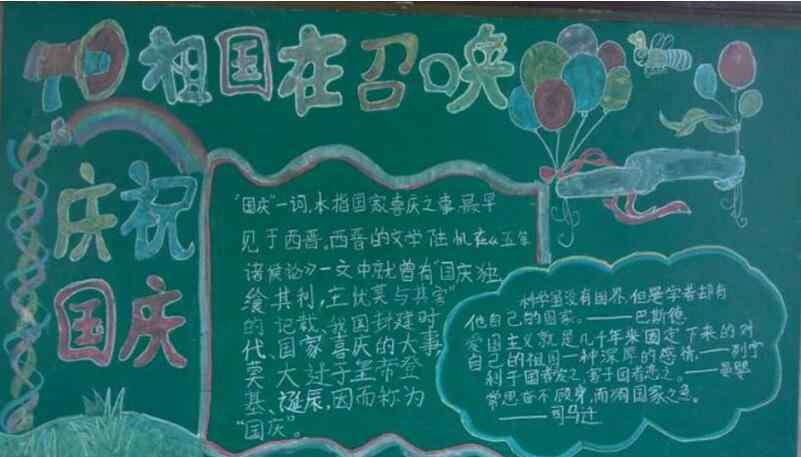 祖国在召唤
庆祝
国庆
"国庆"一词,本指国家喜庆之事,最早
见于西晋。西晋的文学陆机在《五等
诸候论》一文中就曾有"国庆独
飨其利,主忧莫与其害"
的记载、我国封建时
代、国家喜庆的大事
莫大过于
帝登
基、诞辰,因而称为
"国庆"。
科学虽没有国界,但是学者却有
他自己的国家。——巴斯德
爱国主义就是几千年来固定下来的对
自己的祖国一种深厚的感情。——列宁
利于国者爱之,害于国者恶之。——晏婴
常思奋不顾身,而殉国家之急。
——司马迁